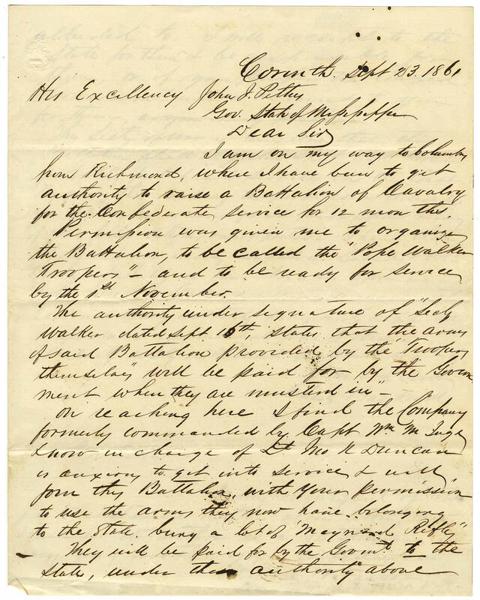 Corinth. Sept 23. 1861
His Excellency John J. Pettus
Gov. State of Mississippi
Dear Sir
I am on my way to Columbus
from Richmond, where I have been to get
authority to raise a Battalion of Cavalry
for the Confederate service for 12 months.
Permission was given me to organize
the Battalion, to be called the "Pope Walker
Troopers" - and to be ready for service
by the 1st November.
The authority under signature of "Secty
Walker dated Sept 16th, states that the arms
of said Battalion provided by the "Troopers
themselves" will be paid for by the Govern
ment when they are mustered in" -
On reaching here I find the Company
formerly commanded by Capt Wm M. Inge
& now in charge of Lt Jno N Duncan
is anxious to get into service & will
form this Battalion, with your permission
to use the arms they now have belonging
to the State. being a lot of "Maynard Rifles"
They will be paid for by the Govmt to the
State, under the authority above